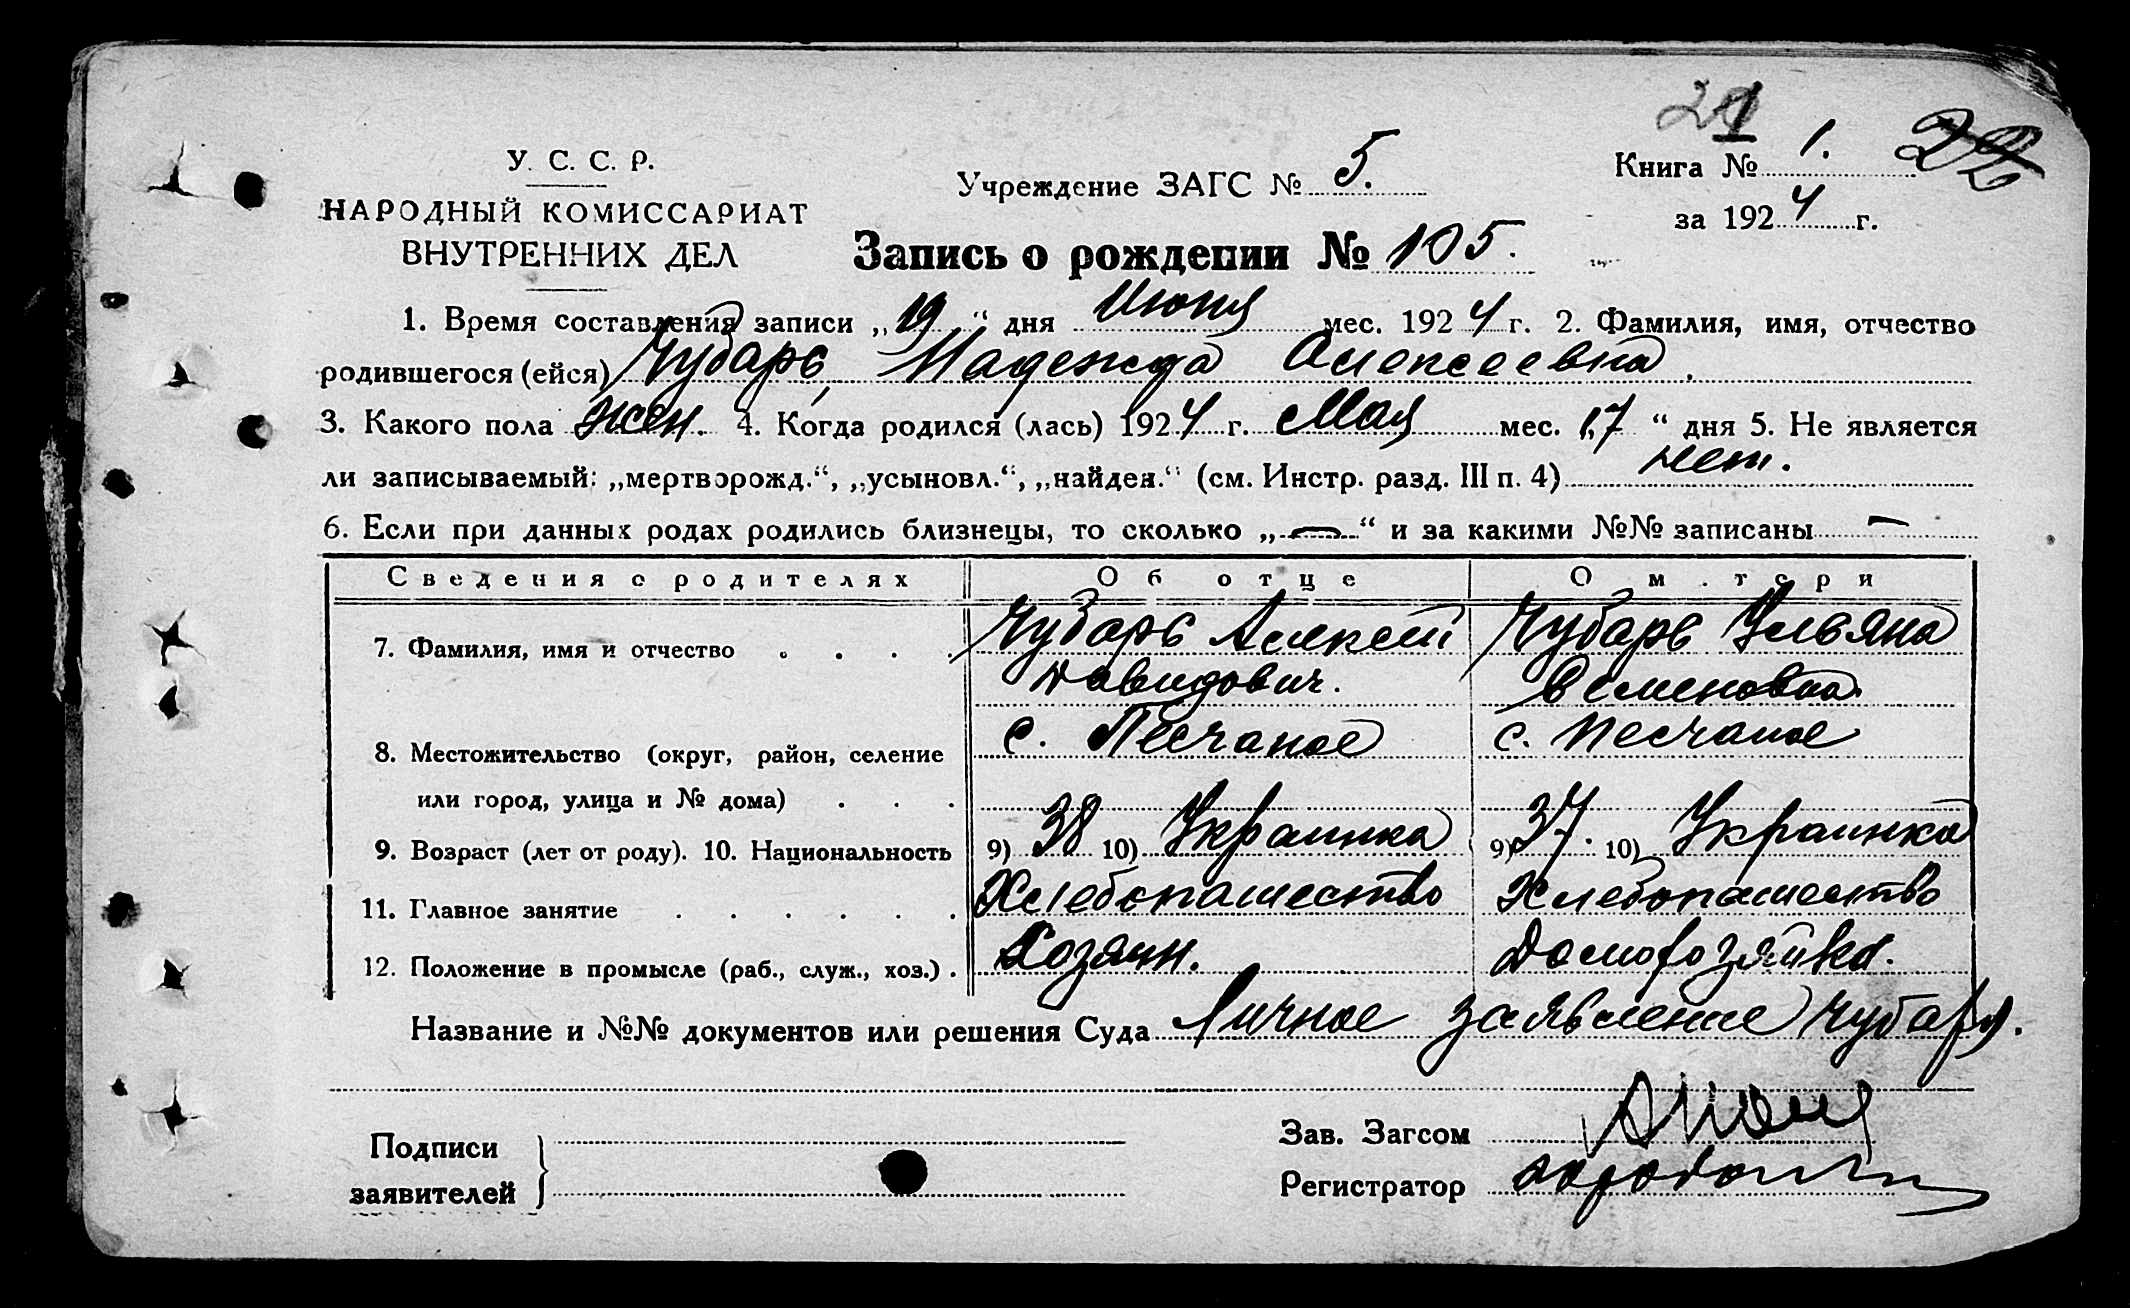 21
22
У. С. С. Р.
НАРОДНЫЙ КОМИССАРИАТ
ВНУТРЕННИХ ДЕЛ
Учреждение ЗАГС № 5.
Книга № 1.
за 1924 г.
Запись о рождении № 105.
1. Время составления записи „19“ дня Июня мес. 1924 г. 2. Фамилия, имя, отчество
родившегося (ейся) Чубарь, Надежда Алексеевна.
3. Какого пола жен. 4. Когда родился (лась) 1924 г. Мая мес. 17 “ дня 5. Не является
ли записываемый: „мертворожд.“, „усыновл.“, „найден.“ (см. Инстр. разд. III п. 4) нет.
6. Если при данных родах родились близнецы, то сколько „—“ и за какими №№ записаны —
Сведения о родителях Об отце О м.тери
7. Фамилия, имя и отчество . . . . Чубарь Алексей Чубарь Ульяна
Давидович. Семеновна.
8. Местожительство (округ, район, селение с. Песчаное с. Песчаное
или город, улица и № дома) . . .
9. Возраст (лет от роду). 10. Национальность 9) 38 10) Украинка 9) 37. 10) Украинка
11. Главное занятие . . . . . . Хлебопашество Хлебопашество
12. Положение в промысле (раб., служ., хоз.) . Хозяин. Домохозяйка.
Название и №№ документов или решения Суда Личное заявление Чубаря.
Подписи
заявителей
Зав. Загсом
Регистратор